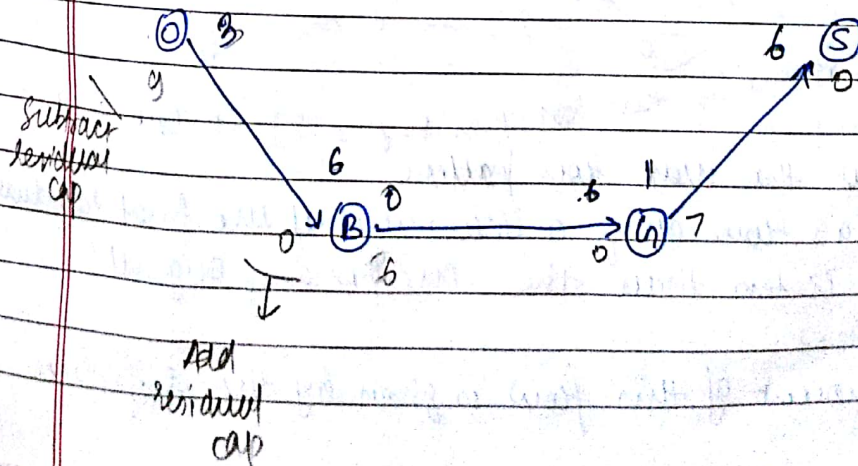 O 3
6 S
0
9
Subtract
residual
cap
6
0 6 11
0 B G 7
6 0
Add
residual
cap